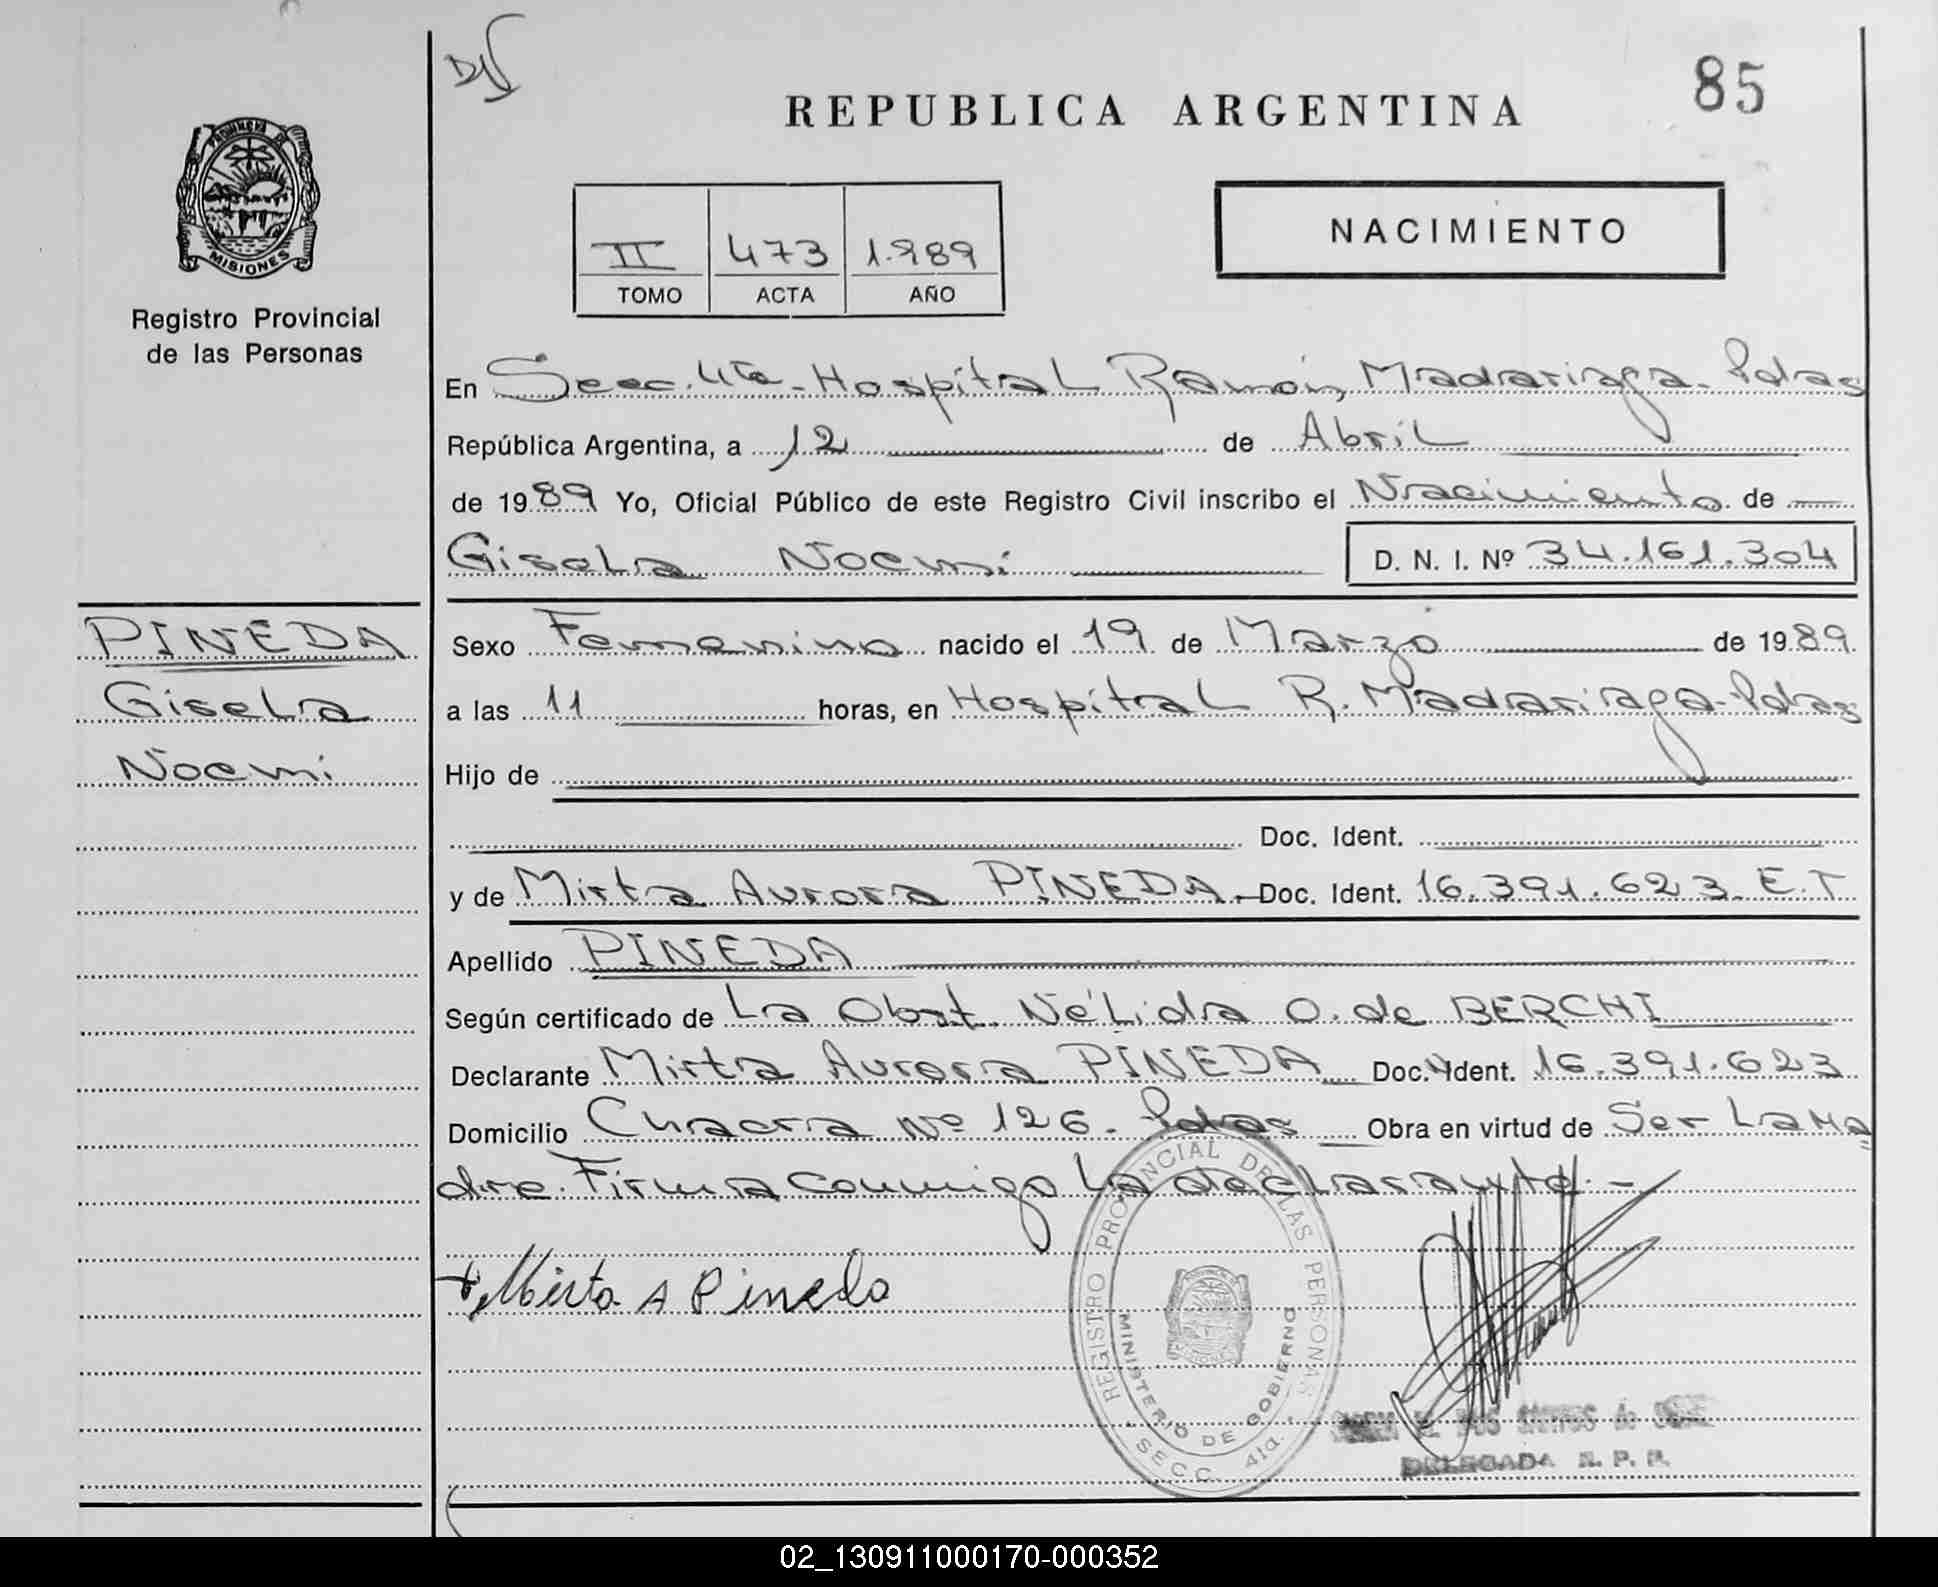 DN
85
REPUBLICA ARGENTINA
PROVINCIA DE
MISIONES
Registro Provincial
de las Personas
NACIMIENTO
II 473 1.989
TOMO ACTA AÑO
En Secc. 4ta - Hospital Ramón Madariaga - Pdas
República Argentina, a 12 de Abril
de 1989 Yo, Oficial Público de este Registro Civil inscribo el Nacimiento de
Gisela Noemi D. N. I. Nº 34.161.304
PINEDA
Gisela
Noemi
Sexo Femenino nacido el 19 de Marzo de 1989
a las 11 horas, en Hospital R. Madariaga - Pdas
Hijo de
Doc. Ident.
y de Mirta Aurora PINEDA - Doc. Ident. 16.391.623 E.T
Apellido PINEDA
Según certificado de La Obst. Nélida O. de BERCHI
Declarante Mirta Aurora PINEDA Doc. Ident. 16.391.623
Domicilio Chacra Nº 126 - Pdas Obra en virtud de Ser La Ma
dre. Firma conmigo La declarante. -
Mirta A Pineda
REGISTRO PROVINCIAL DE LAS PERSONAS
MINISTERIO DE GOBIERNO
SECC. 4ta.
DOS SANTOS de
DELEGADA R. P. P.
02_130911000170-000352